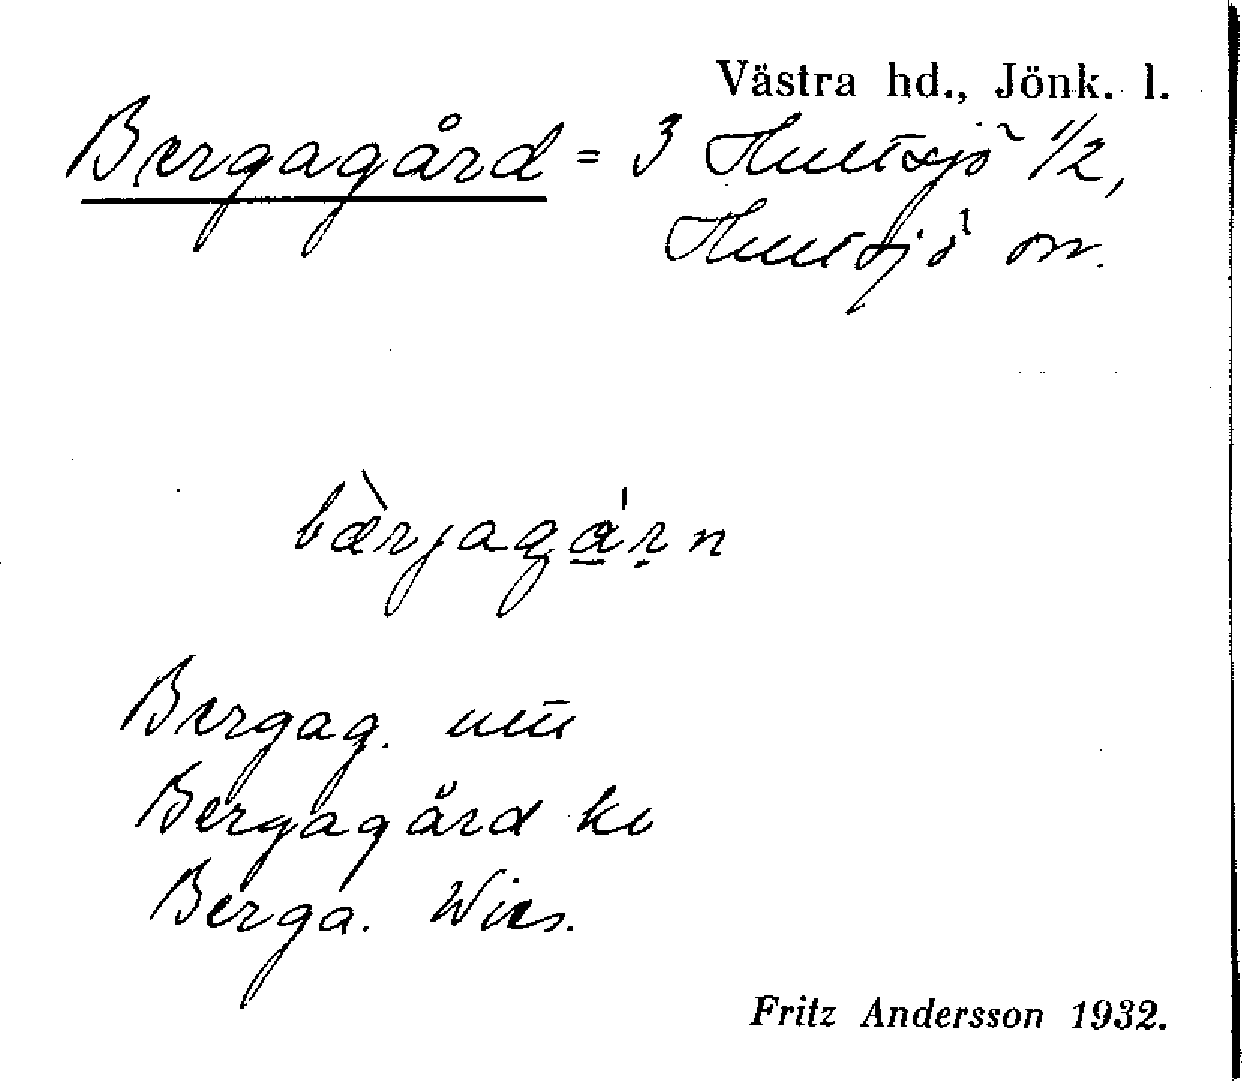 Västra hd., Jönk. l.
Bergagård = 3 Hultsjö 1/2,
Hultsjö sn.
bærjagárn
Bergag.
Bergagård kv
Berga. Wies.
Fritz Andersson 1932.